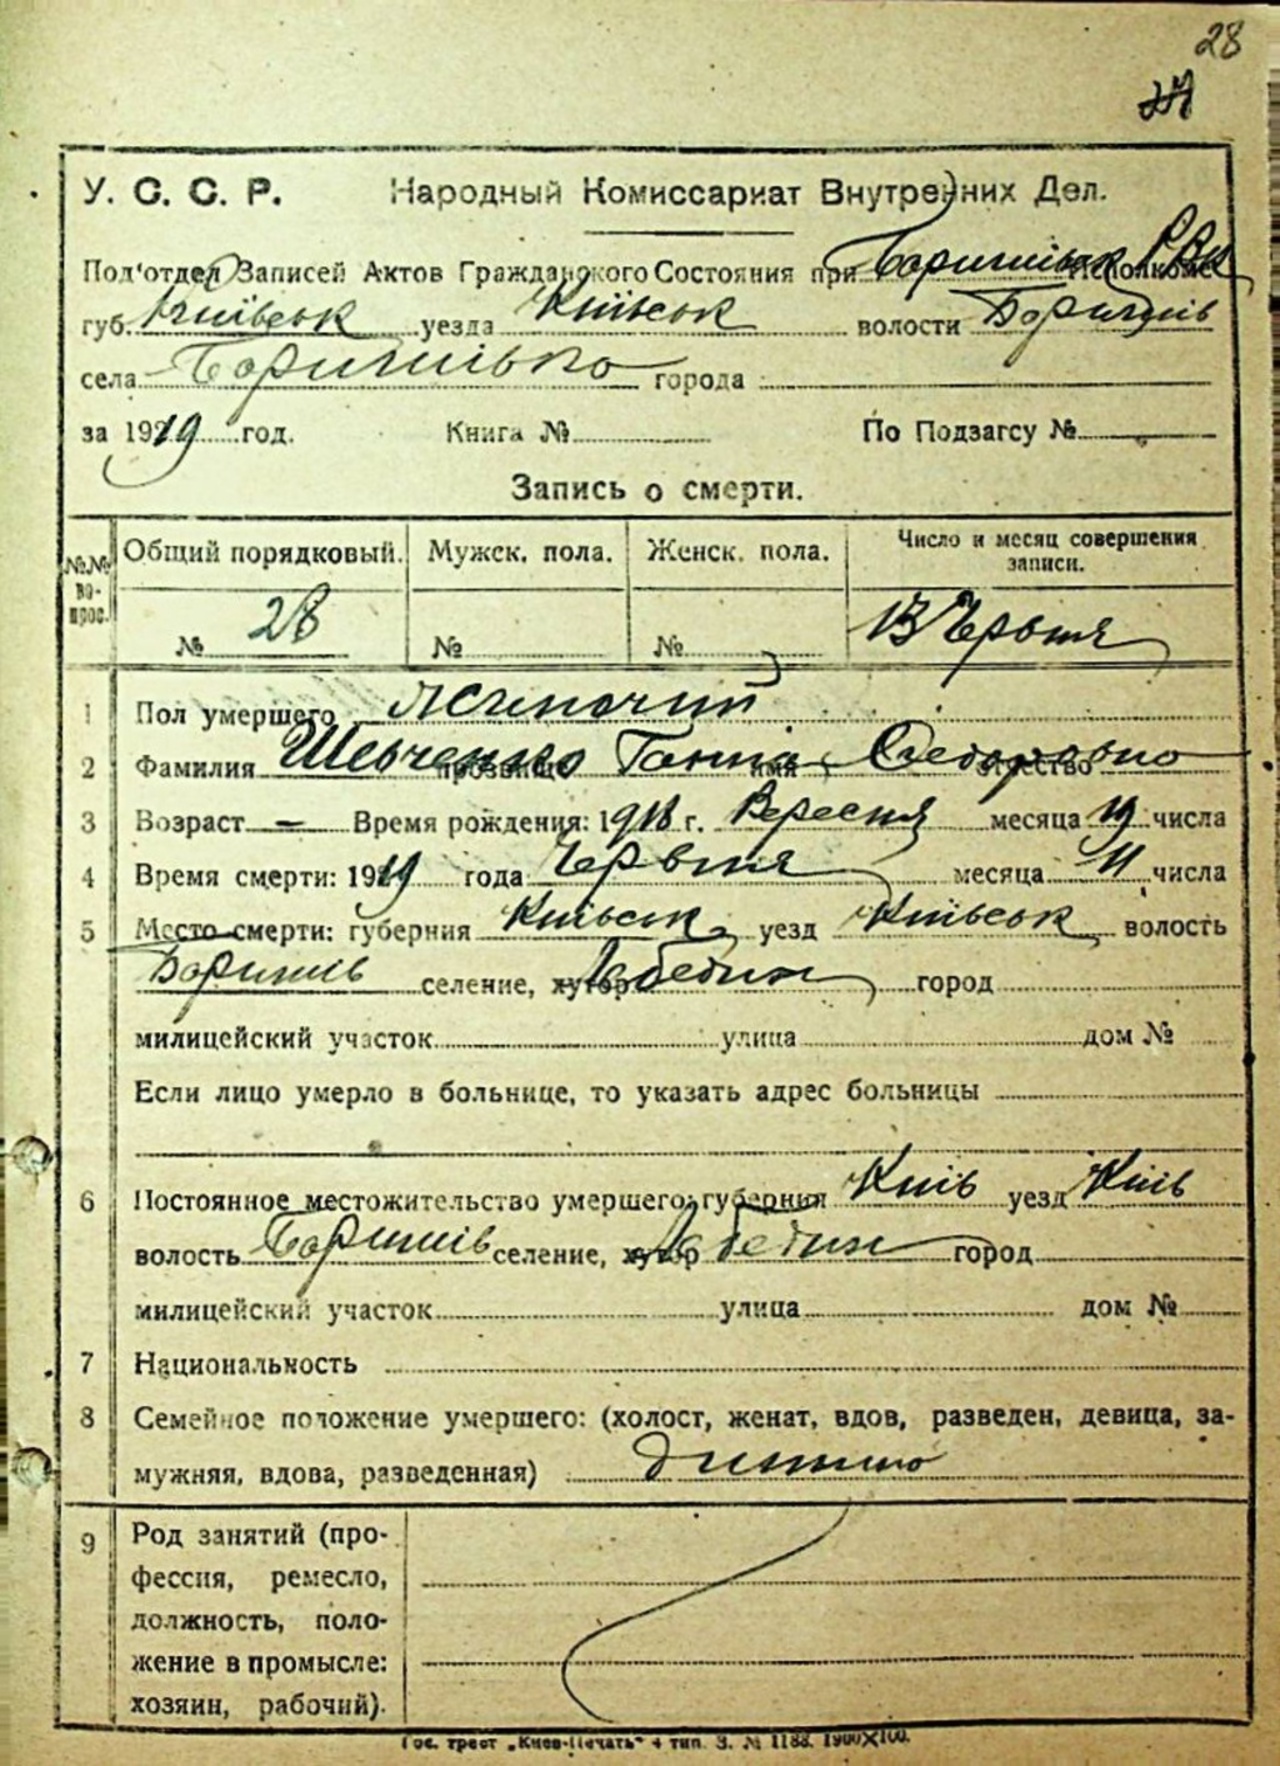 28
У. С. С. Р. Народный Комиссариат Внутренних Дел.
Под'отдел Записей Актов Гражданского Состояния при Баришівськ РВК Исполкоме
губ. Київськ уезда Київськ волости Баришів
села Баришівка города
за 1919 год. Книга № По Подзагсу №
Запись о смерти.
№№ во-прос. Общий порядковый. Мужск. пола. Женск. пола. Число и месяц совершения записи.
№ 28 № № 13 Червня
1 Пол умершего жіночий
2 Фамилия Шевченко прозвище Ганна имя отчество
3 Возраст — Время рождения: 1918 г. Вересня месяца 19 числа
4 Время смерти: 1919 года Червня месяца 11 числа
5 Место смерти: губерния Київськ уезд Київськ волость
Баришів селение, хутор Лебедин город
милицейский участок улица дом №
Если лицо умерло в больнице, то указать адрес больницы
6 Постоянное местожительство умершего: губерния Київ уезд Київ
волость Баришів селение, хутор Лебедин город
милицейский участок улица дом №
7 Национальность
8 Семейное положение умершего: (холост, женат, вдов, разведен, девица, за-
мужняя, вдова, разведенная) дитина
9 Род занятий (про-
фессия, ремесло,
должность, поло-
жение в промысле:
хозяин, рабочий).
Гос. трест „Киев-Печать" 4 тип. З. № 1188. 1900×100.